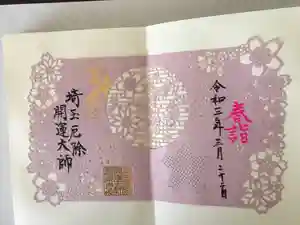 春詣
令和三年三月二十二日
埼玉厄除
開運大師